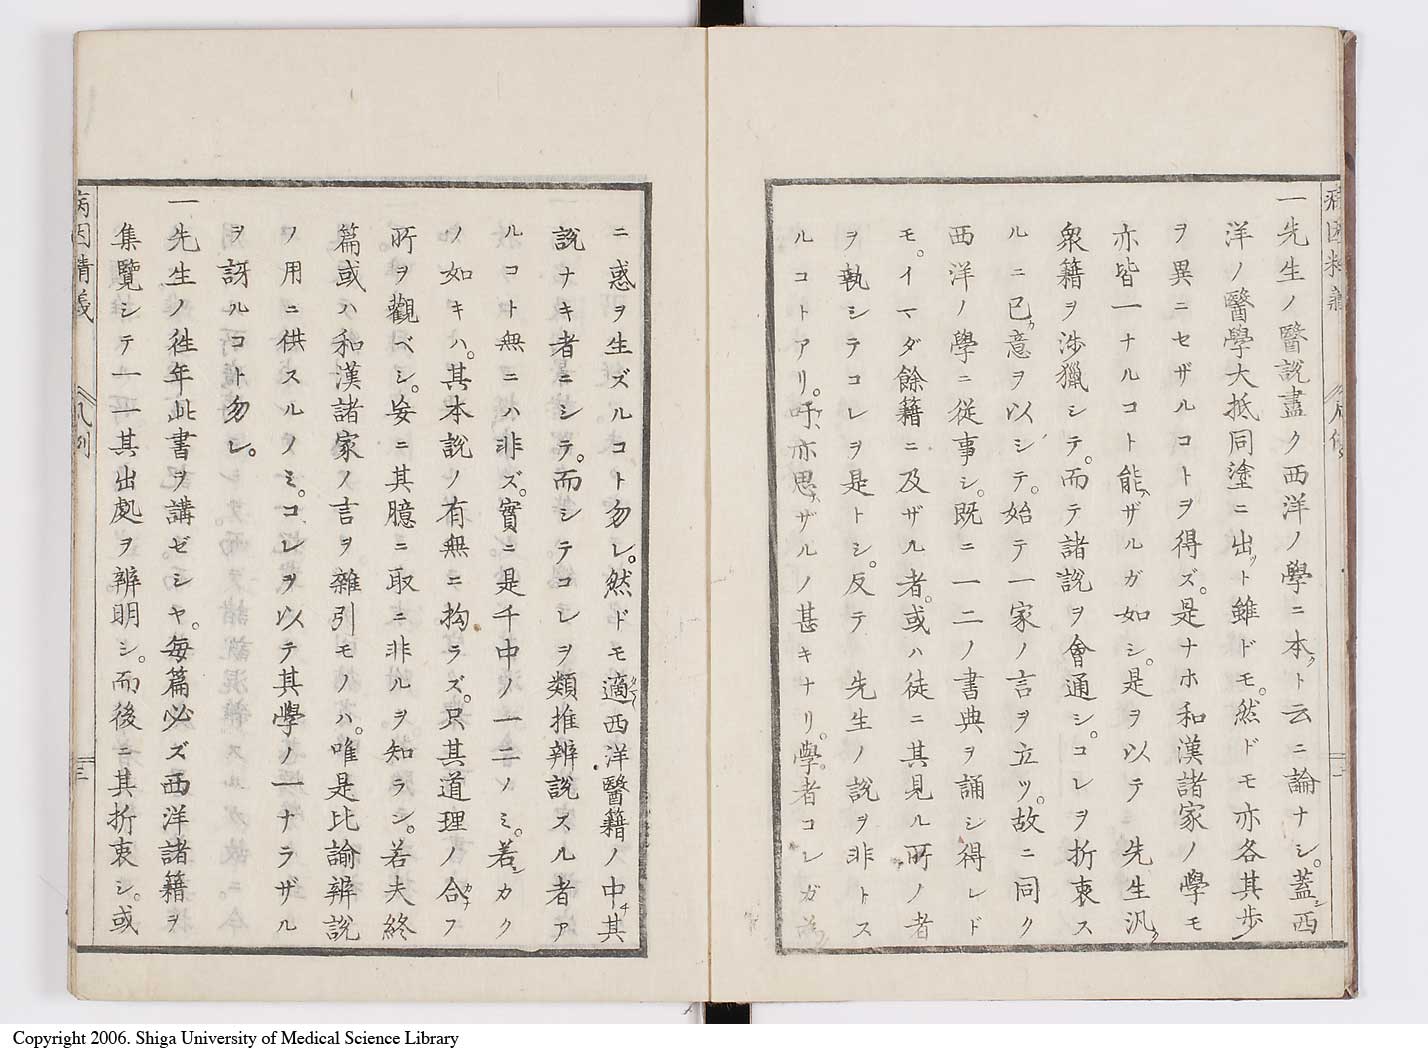 病因精義
凡例
一先生ノ醫説盡ク西洋ノ學ニ本ト云ニ論ナシ。蓋シ西
洋ノ醫學大抵同塗ニ出ト雖ドモ。然ドモ亦各其歩
ヲ異ニセザルコトヲ得ズ。是ナホ和漢諸家ノ學モ
亦皆一ナルコト能ハザルガ如シ。是ヲ以テ 先生汎ク
衆籍ヲ渉獵シテ。而テ諸説ヲ會通シ。コレヲ折衷ス
ルニ已意ヲ以シテ。始テ一家ノ言ヲ立ツ。故ニ同ク
西洋ノ學ニ從事シ。既ニ一二ノ書典ヲ誦シ得レド
モ。イマダ餘籍ニ及ザル者。或ハ徒ニ其見ル所ノ者
ヲ執シテコレヲ是トシ。反テ 先生ノ説ヲ非トス
ルコトアリ。吁亦思ハザルノ甚キナリ。學者コレガ為
ニ惑ヲ生ズルコト勿レ。然ドモ適西洋醫籍ノ中チ其
説ナキ者ニシテ。而シテコレヲ類推辨説スル者ア
ルコト無ニハ非ズ。實ニ是千中ノ一二ノミ。若シカク
ノ如キハ。其本説ノ有無ニ拘ラズ。只其道理ノ合フ
所ヲ觀ベシ。妄ニ其臆ニ取ニ非ルヲ知ラン。若夫終
篇或ハ和漢諸家ノ言ヲ雜引モノハ。唯是比諭辨説
ノ用ニ供スルノミ。コレヲ以テ其學ノ一ナラザル
ヲ訝ルコト勿レ。
一先生ノ徃年此書ヲ講ゼシヤ。毎篇必ズ西洋諸籍ヲ
集覽シテ一一其出處ヲ辨明シ。而後ニ其折衷シ。或
病因精義
凡例
三
Copyright 2006. Shiga University of Medical Science Library